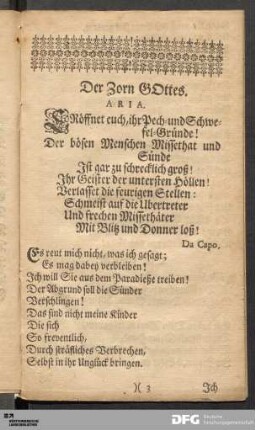 Der Zorn GOttes,
ARIA.
ERöffnet euch, ihr Pech- und Schwe-
fel-Gründe!
Der bösen Menschen Missethat und
Sünde
Ist gar zu schrecklich groß!
Ihr Geister der untersten Höllen!
Verlasset die feurigen Stellen:
Schmeist auf die Ubertreter
Und frechen Missethäter
Mit Blitz und Donner loß!
Da Capo,
Es reut mich nicht, was ich gesagt;
Es mag dabey verbleiben!
Ich will Sie aus dem Paradieße treiben!
Der Abgrund soll die Sünder
Verschlingen!
Das sind nicht meine Kinder
Die sich
So freventlich,
Durch sträfliches Verbrechen,
Selbst in ihr Unglück bringen.
)( 3
Ich
DFG
Deutsche
Forschungsgemeinschaft